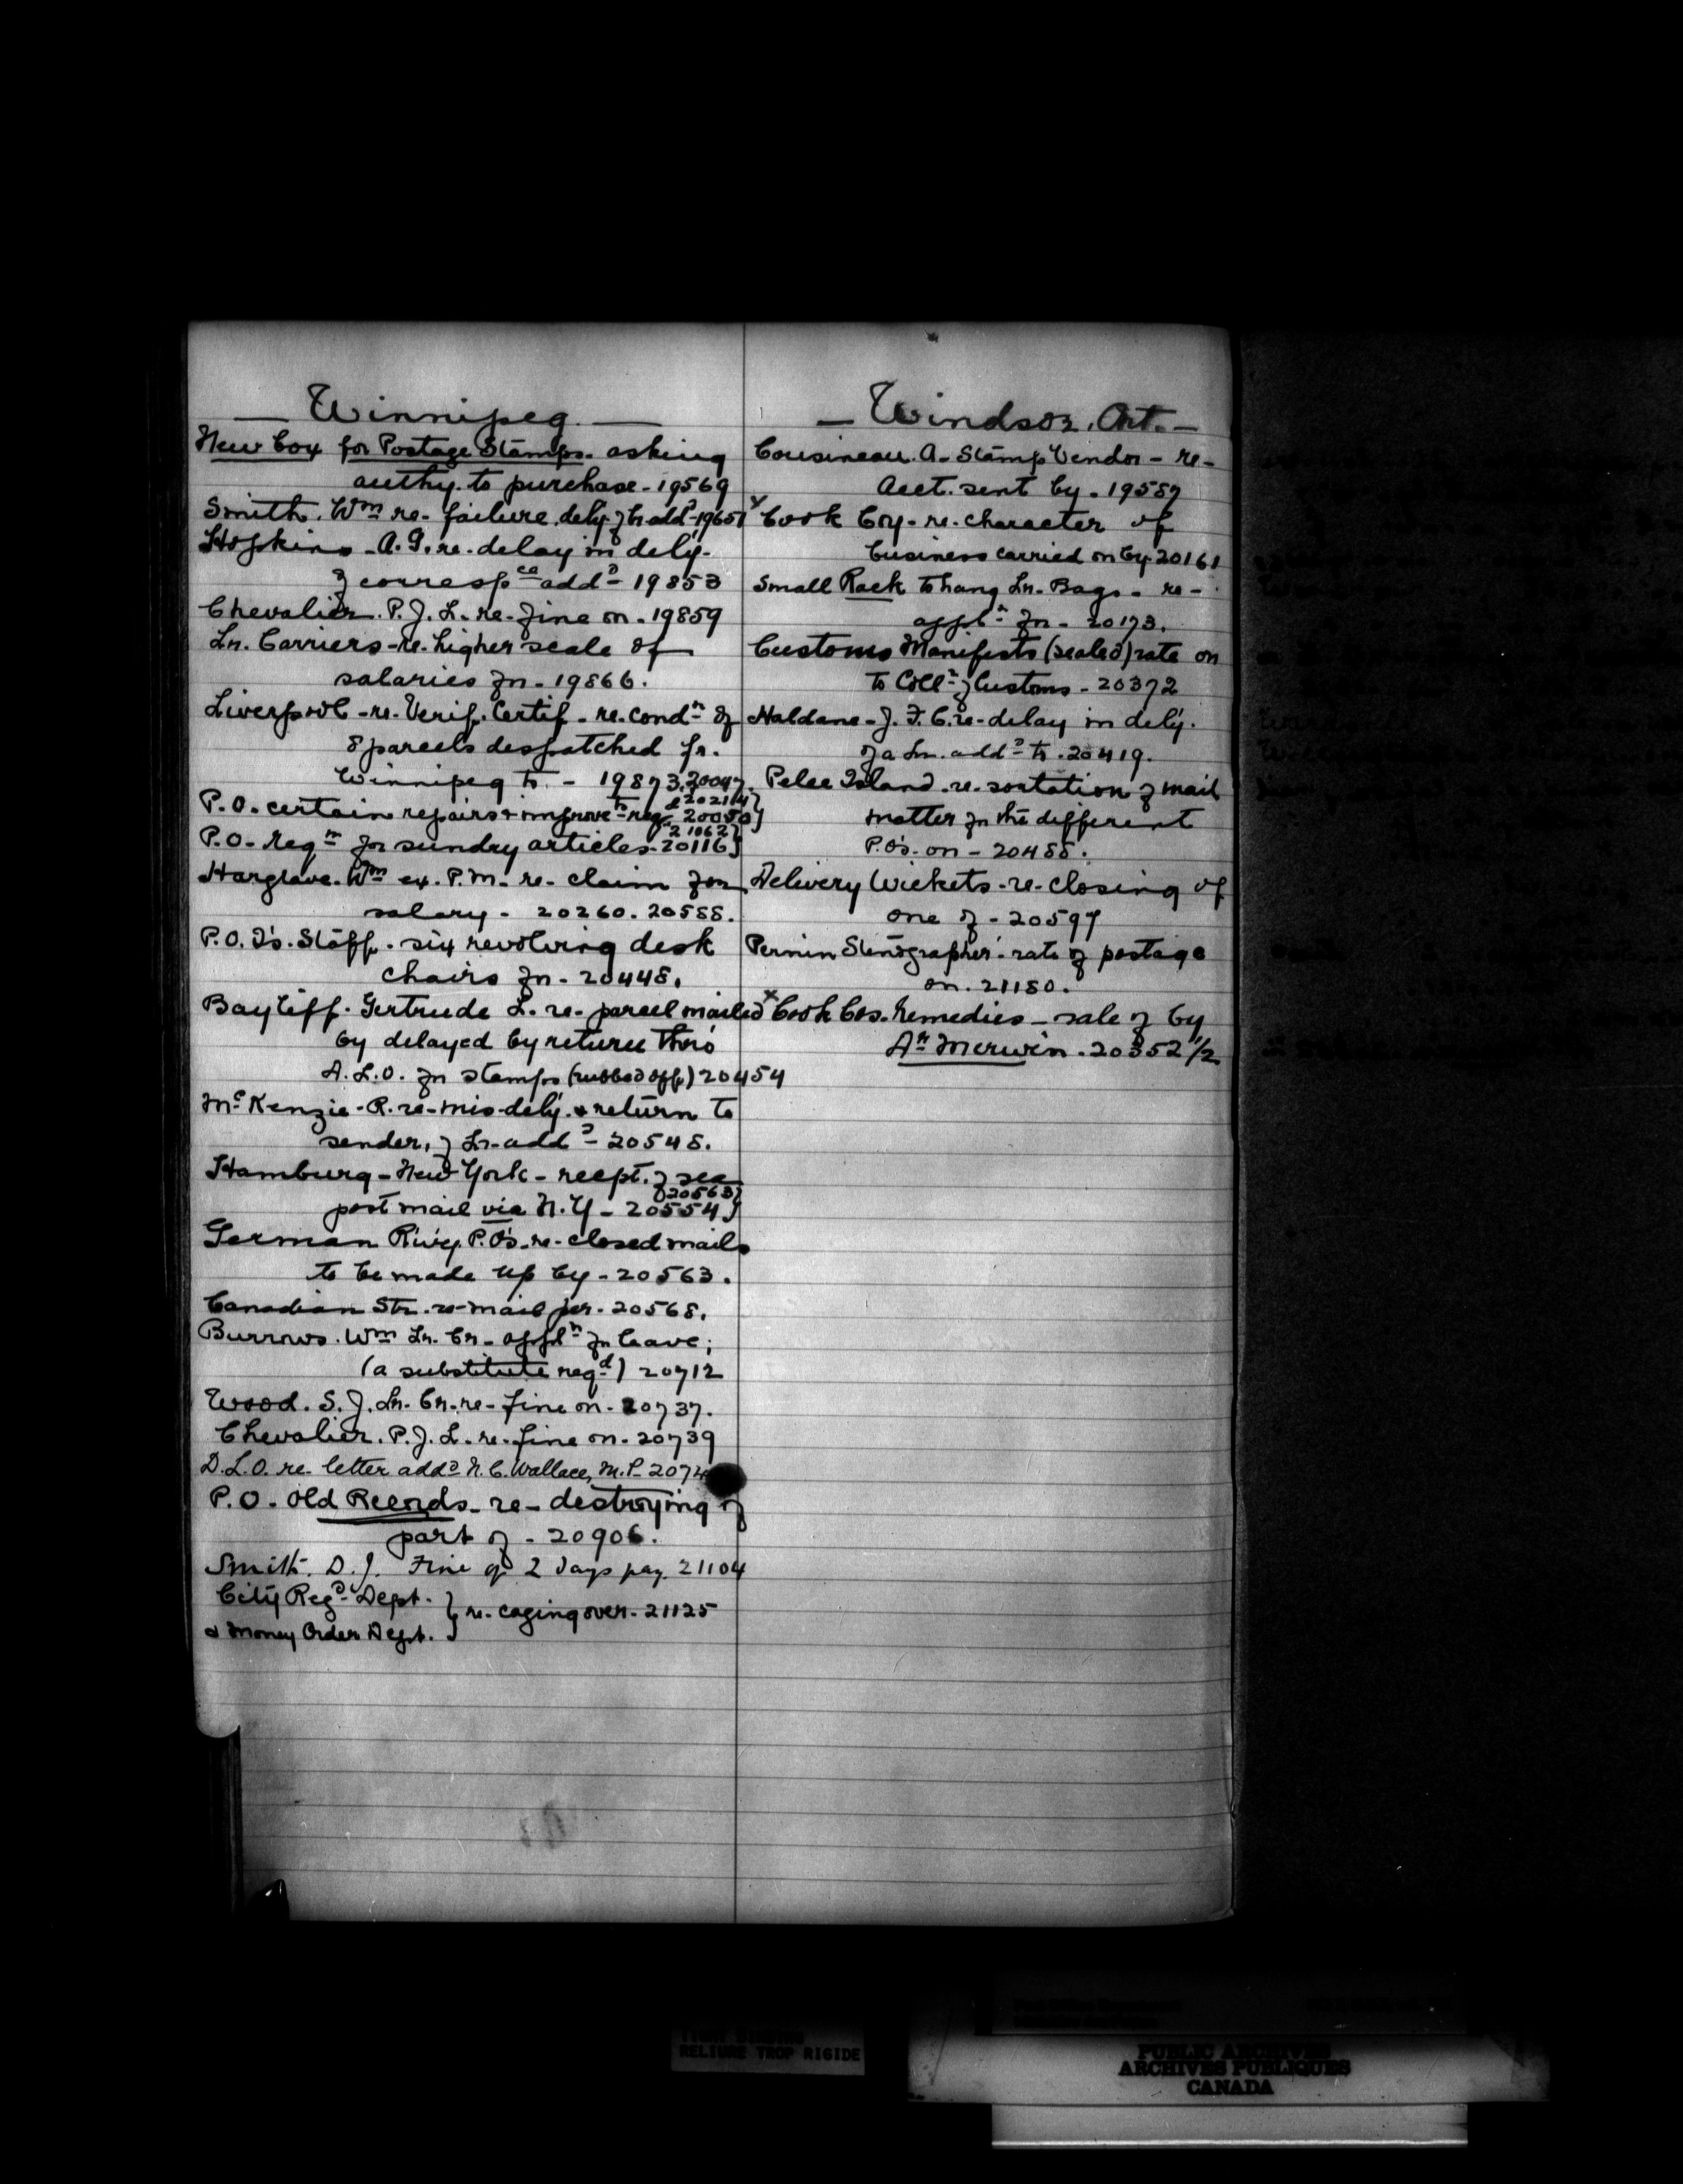 — Winnipeg —
New box for Postage Stamps. asking
authy. to purchase - 19569
Smith. Wm re. failure dely. of lr. addd - 19651
Hopkins - A. G. re. delay in dely.
of correspce addd - 19853
Chevalier. P. J. L. re. fine on. 19859
Lr. Carriers - re. higher scale of
salaries for - 19866.
Liverpool - re. Verif. Certif - re. condn of
8 parcels despatched fr.
Winnipeg to - 19873. 20047.
& 20214
P.O. certain repairs & improvets reqd 20050
21062
P.O. Reqn for sundry articles - 20116
Hargrave. Wm ex. P.M. re - claim for
salary - 20260. 20588.
P.O. I's. Staff - six revolving desk
chairs for - 20448.
Bayliff. Gertrude L. re - parcel mailed
by delayed by return thro'
D.L.O. for stamps (rubbed off) 20454
McKenzie - R. re - mis-dely. & return to
sender, of Lr. addd - 20548.
Hamburg - New York - recpt. of sea
20563
post mail via N.Y - 20554
German R'w'y. P.O's. re - closed mails
to be made up by - 20563.
Canadian Str. re - mail per - 20568.
Burrows. Wm Lr. Cr. appln for leave;
(a substitute reqd) 20712
Wood. S. J. Lr. Cr. re - fine on - 20737.
Chevalier. P. J. L. re. fine on - 20739
D.L.O. re letter addd N. C. Wallace, M.P. 2074
P.O. Old Records - re - destroying of
part of - 20906.
Smith. D. J. Fine of 2 days pay 21104
City Regd Dept.
re. caging over - 21125
& Money Order Dept.
— Windsor. Ont. —
Cousineau. A - Stamp Vendor - re -
Acct. sent by - 19587
x Cook Coy - re. character of
business carried on by 20161
Small Rack to hang Lr. Bags - re -
appln for - 20173.
Customs Manifests (sealed) rate on
to Collr of Customs - 20372
Haldane - J. F. C. re - delay in dely.
of a Lr. addd to - 20419.
Pelee Island. re. sortation of mail
matter for the different
P.O's. on - 20488.
Delivery Wickets - re - closing of
one of - 20597
Pernin Stenographer - rate of postage
on. 21180.
x Cook Cos. Remedies - sale of by
Merwin - 20352 1/2
RELIURE TROP RIGIDE
PUBLIC ARCHIVES
ARCHIVES PUBLIQUES
CANADA